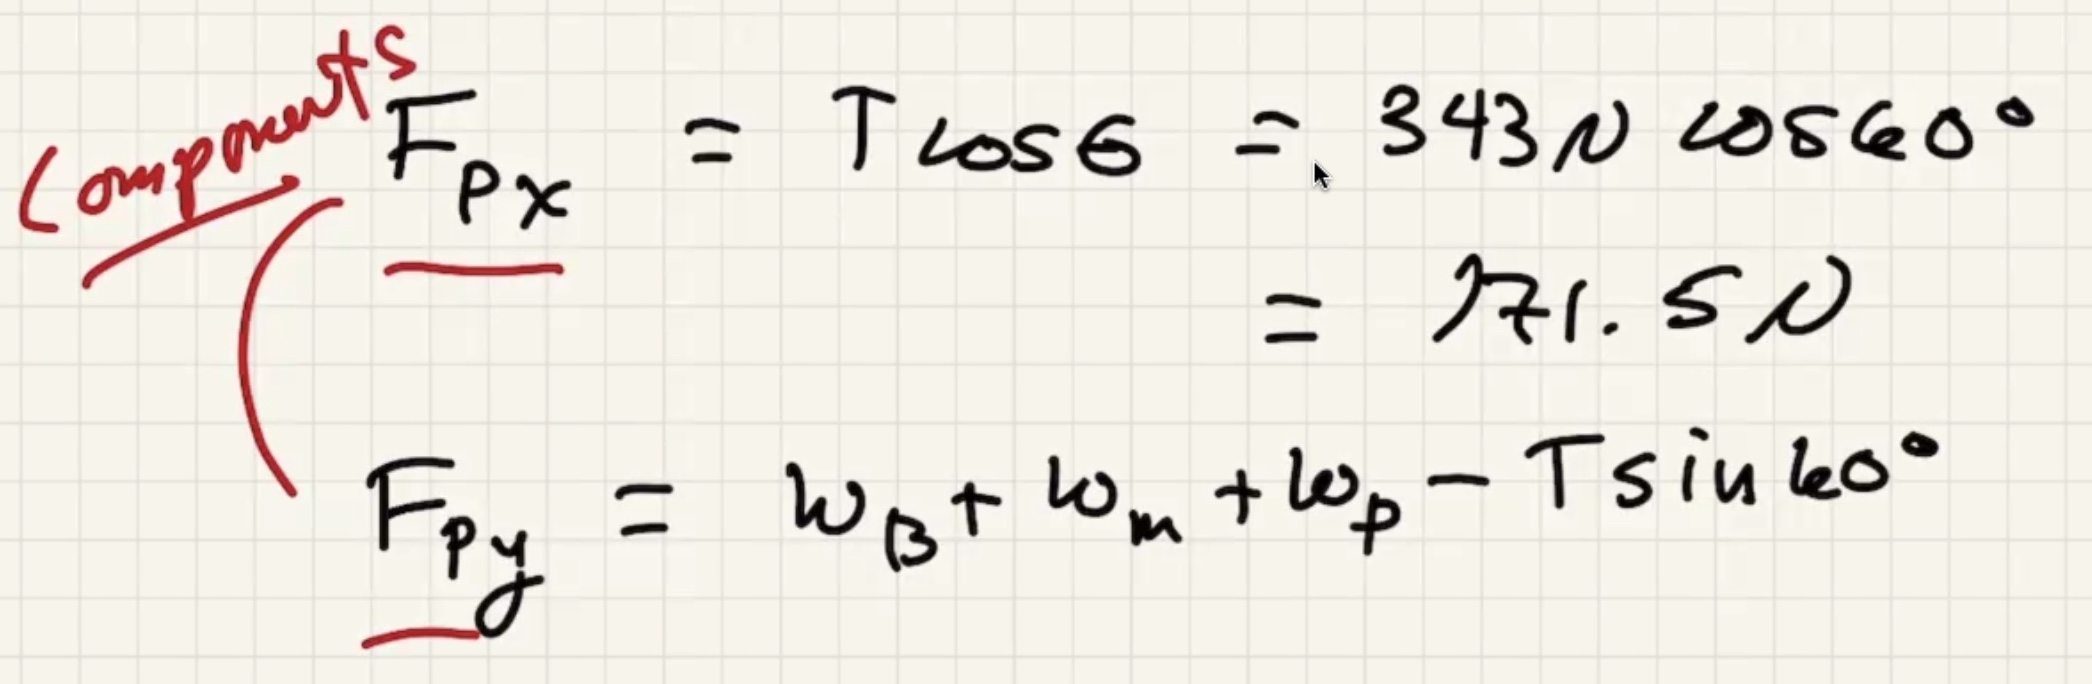 Components
F_Px = T cos θ = 343N cos 60°
= 171.5 N
F_Py = w_B + w_m + w_p - T sin 60°